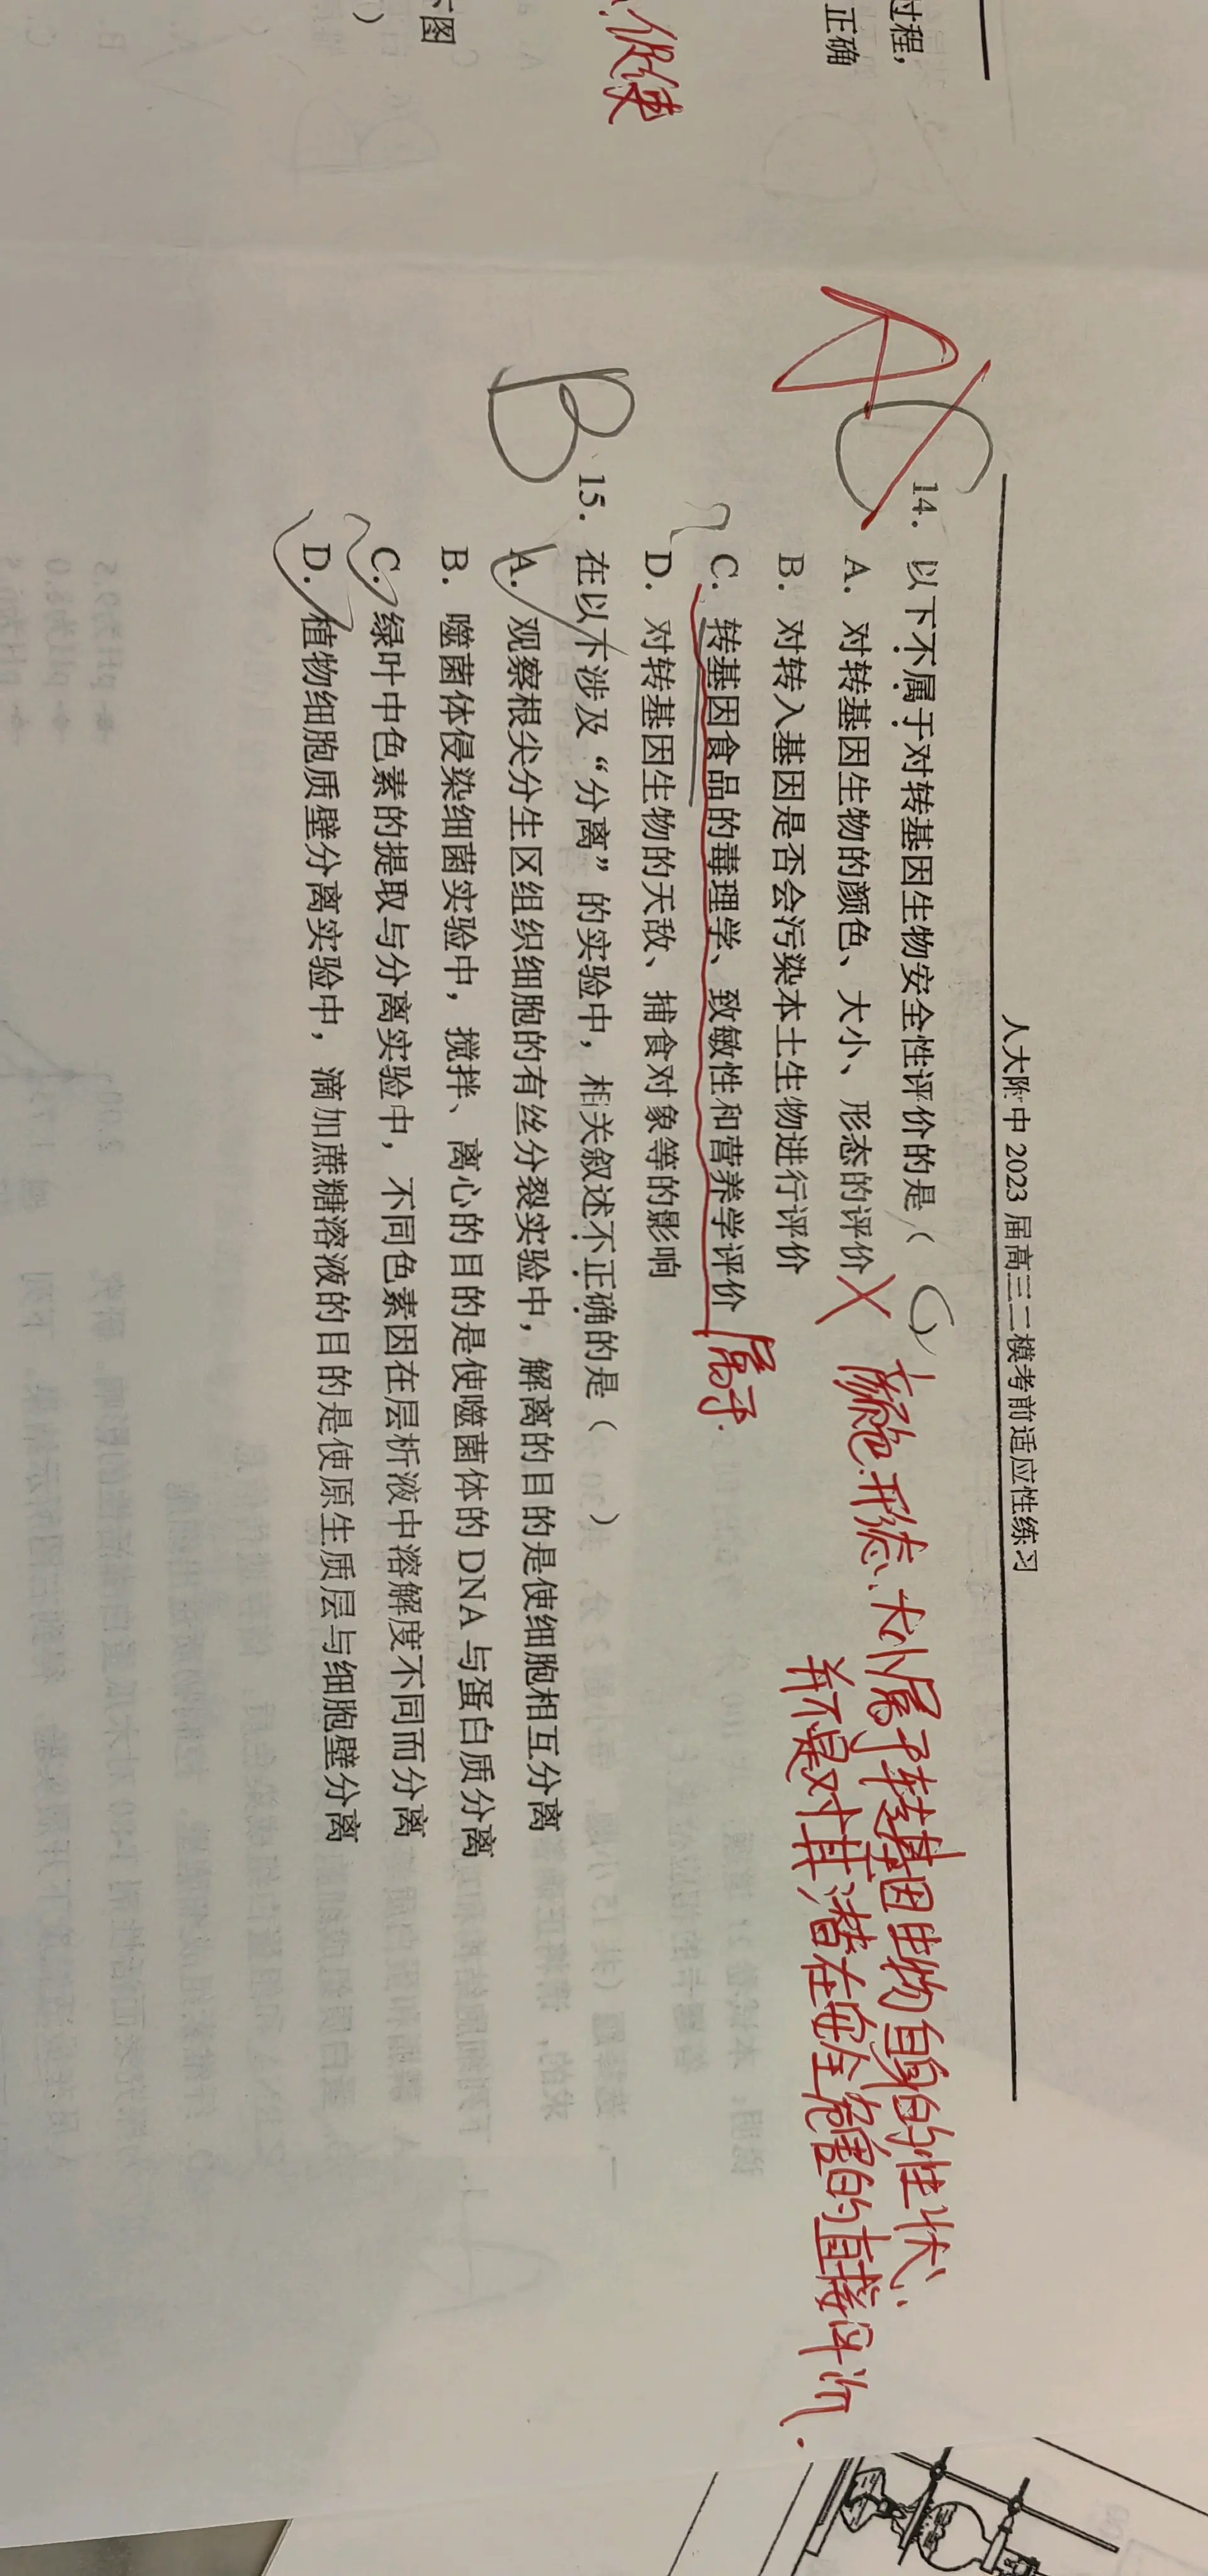 过程，
正确
下图
）
促使
人大附中 2023 届高三二模考前适应性练习
A C
14. 以下不属于对转基因生物安全性评价的是（ C ）
A. 对转基因生物的颜色、大小、形态的评价 X 颜色.形态.大小属于转基因生物自身的性状,
并不是对其潜在安全危害的直接评价.
B. 对转入基因是否会污染本土生物进行评价
? C. 转基因食品的毒理学、致敏性和营养学评价 属于.
D. 对转基因生物的天敌、捕食对象等的影响
B
15. 在以下涉及“分离”的实验中，相关叙述不正确的是（ ）
A. 观察根尖分生区组织细胞的有丝分裂实验中，解离的目的是使细胞相互分离
B. 噬菌体侵染细菌实验中，搅拌、离心的目的是使噬菌体的DNA与蛋白质分离
C. 绿叶中色素的提取与分离实验中，不同色素因在层析液中溶解度不同而分离
D. 植物细胞质壁分离实验中，滴加蔗糖溶液的目的是使原生质层与细胞壁分离